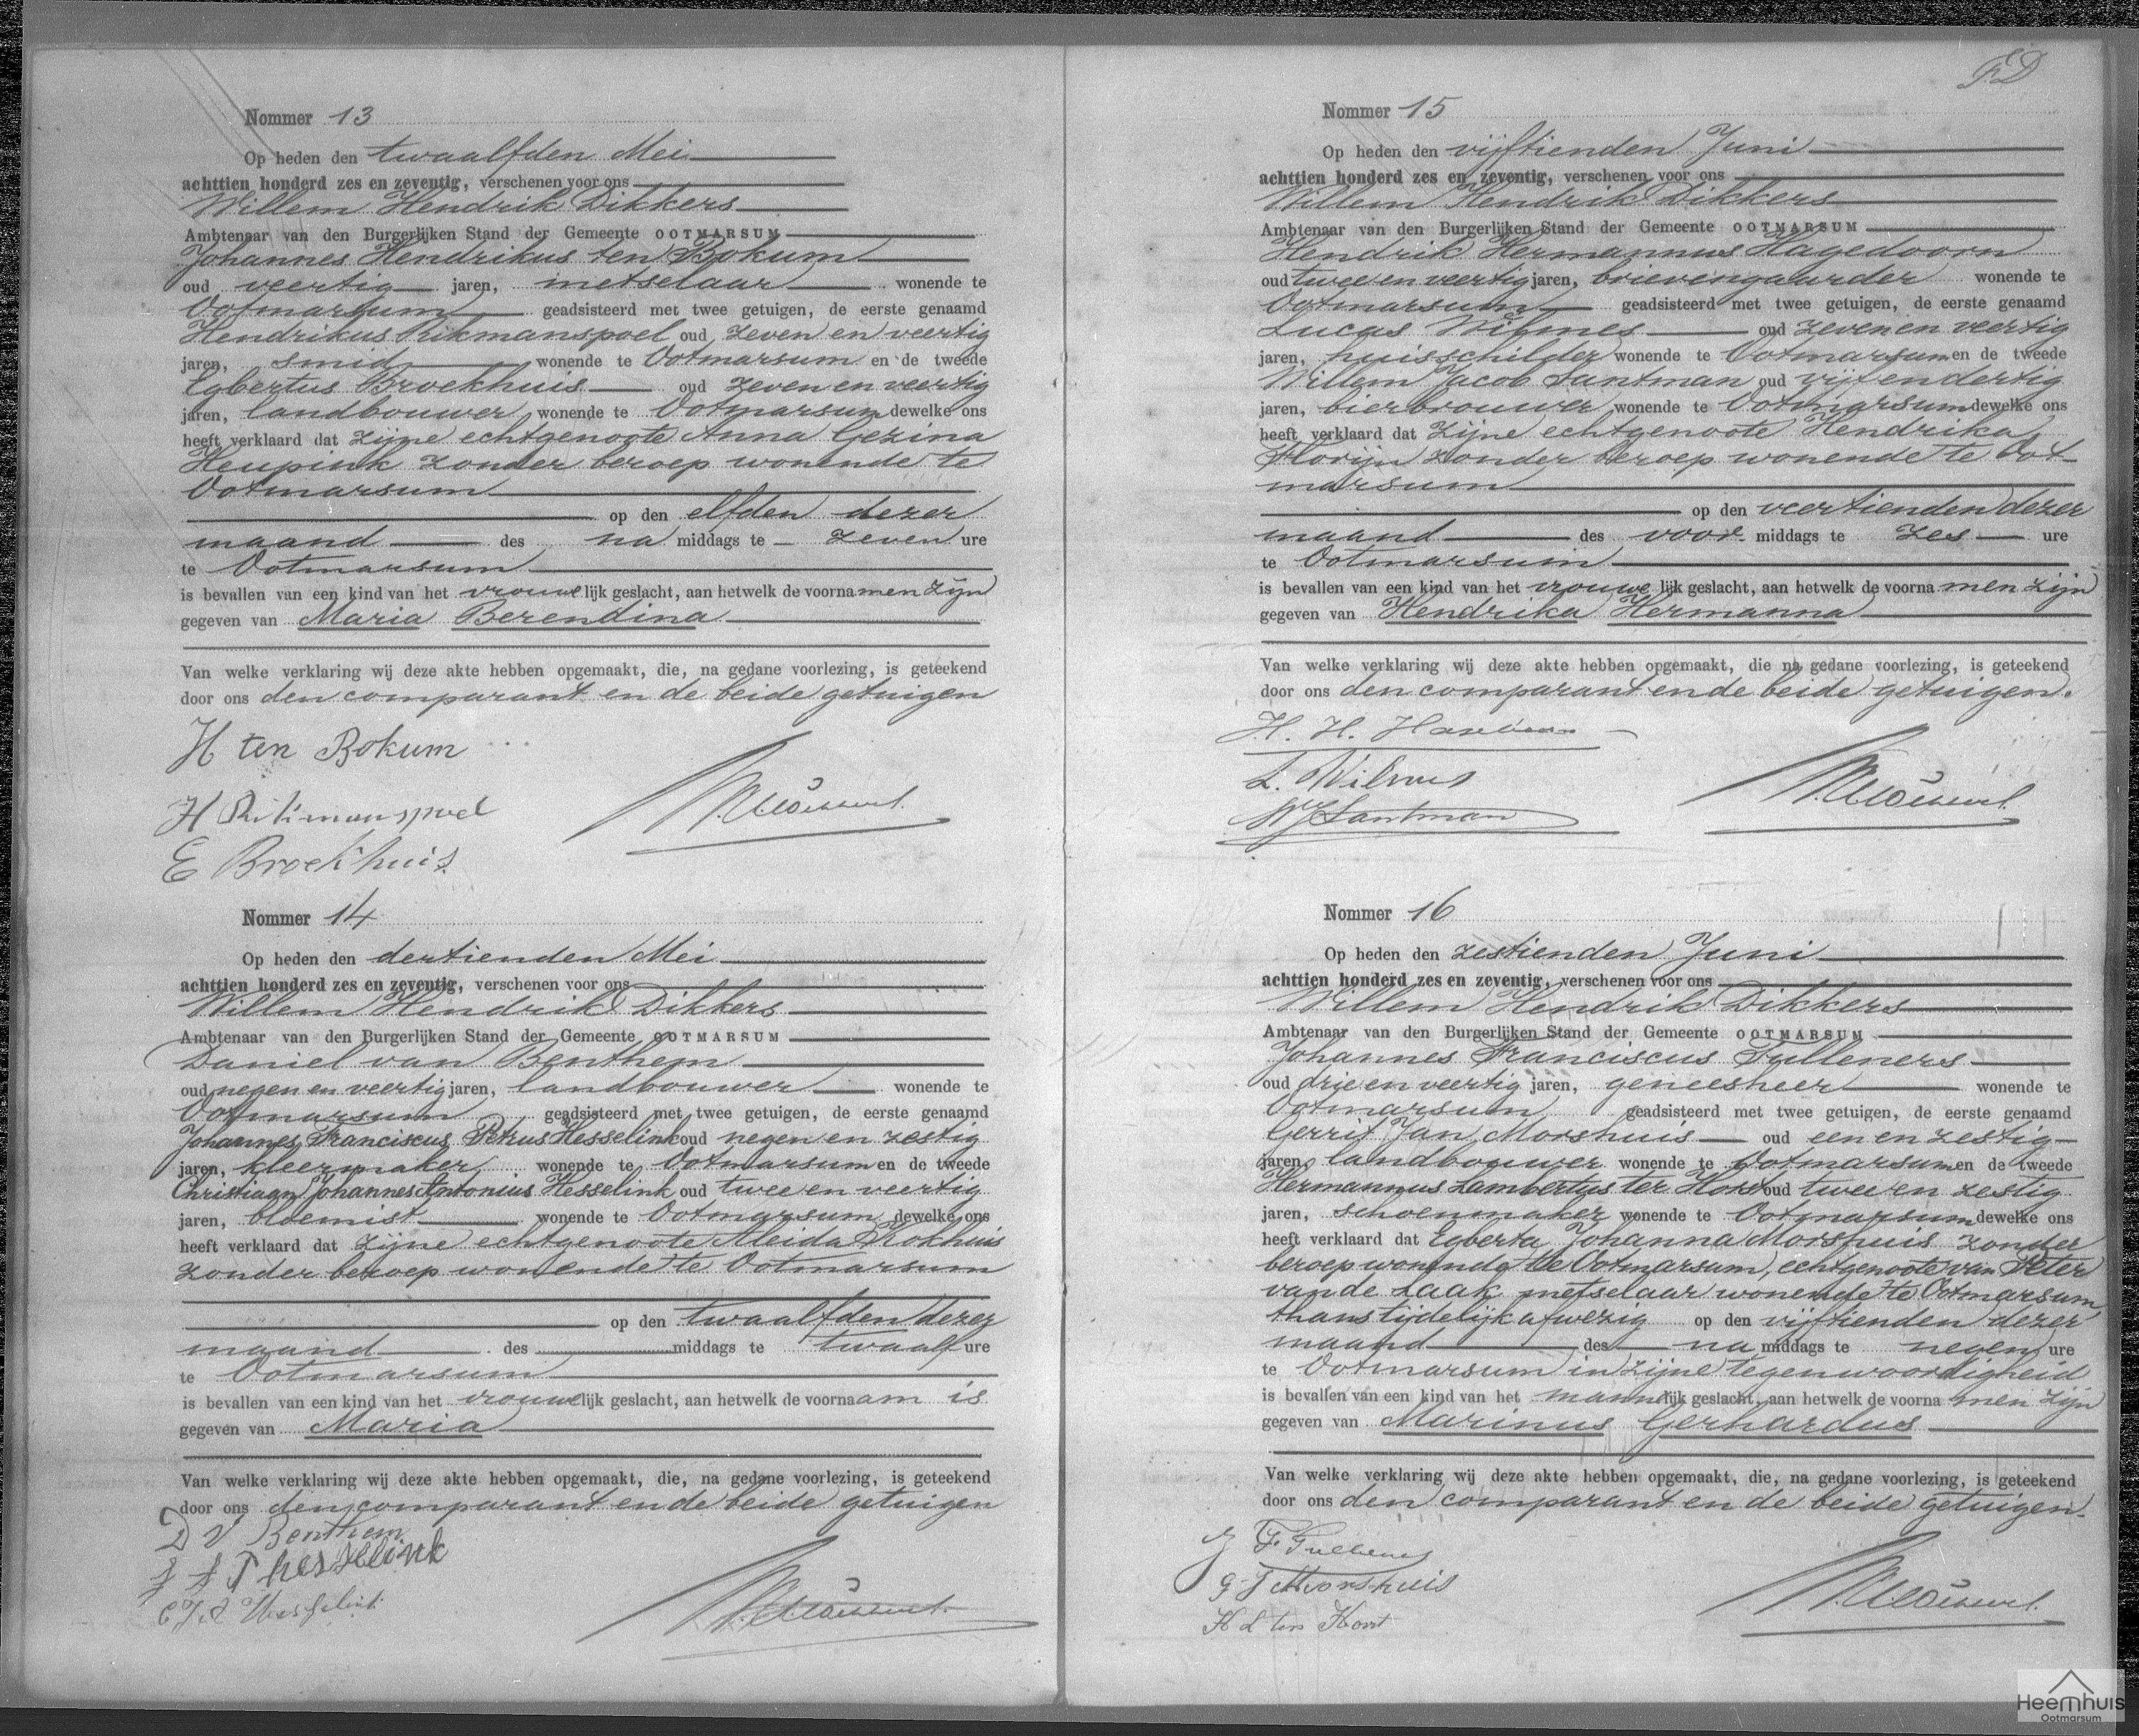 Nommer 13
Op heden den twaalfden Mei
achttien honderd zes en zeventig, verschenen voor ons
Willem Hendrik Dikkers
Ambtenaar van den Burgerlijken Stand der Gemeente OOTMARSUM
Johannes Hendrikus ten Bokum
oud veertig jaren, metselaar wonende te
Ootmarsum geadsisteerd met twee getuigen, de eerste genaamd
Hendrikus Rikmanspoel oud zeven en veertig
jaren, smid wonende te Ootmarsum en de tweede
Egbertus Broekhuis oud zeven en veertig
jaren, landbouwer wonende te Ootmarsum dewelke ons
heeft verklaard dat zijne echtgenoote Anna Gezina
Heupink zonder beroep wonende te
Ootmarsum
op den elfden dezer
maand des na middags te zeven ure
te Ootmarsum
is bevallen van een kind van het vrouwelijk geslacht, aan hetwelk de voornamen zijn
gegeven van Maria Berendina
Van welke verklaring wij deze akte hebben opgemaakt, die, na gedane voorlezing, is geteekend
door ons den comparant en de beide getuigen
H ten Bokum
H Rikmanspoel
E Broekhuis
Nommer 14
Op heden den dertienden Mei
achttien honderd zes en zeventig, verschenen voor ons
Willem Hendrik Dikkers
Ambtenaar van den Burgerlijken Stand der Gemeente OOTMARSUM
Daniel van Benthem
oud negen en veertig jaren, landbouwer wonende te
Ootmarsum geadsisteerd met twee getuigen, de eerste genaamd
Johannes Franciscus Petrus Hesselink oud negen en zestig
jaren, kleermaker wonende te Ootmarsum en de tweede
Christiaan Johannes Antonius Hesselink oud twee en veertig
jaren, bloemist wonende te Ootmarsum dewelke ons
heeft verklaard dat zijne echtgenoote Aleida Kokhuis
zonder beroep wonende te Ootmarsum
op den twaalfden dezer
maand des middags te twaalf ure
te Ootmarsum
is bevallen van een kind van het vrouwelijk geslacht, aan hetwelk de voornaam is
gegeven van Maria
Van welke verklaring wij deze akte hebben opgemaakt, die, na gedane voorlezing, is geteekend
door ons den comparant en de beide getuigen
D V Benthem
J F P hesselink
C J A Hesselink
Nommer 15
Op heden den vijftienden Juni
achttien honderd zes en zeventig, verschenen voor ons
Willem Hendrik Dikkers
Ambtenaar van den Burgerlijken Stand der Gemeente OOTMARSUM
Hendrik Hermannus Hagedoorn
oud twee en veertig jaren, brievengaarder wonende te
Ootmarsum geadsisteerd met twee getuigen, de eerste genaamd
Lucas Wilmes oud zeven en veertig
jaren, huisschilder wonende te Ootmarsum en de tweede
Willem Jacob Santman oud vijf en dertig
jaren, bierbrouwer wonende te Ootmarsum dewelke ons
heeft verklaard dat zijne echtgenoote Hendrika
Florijn zonder beroep wonende te Oot-
marsum
op den veertienden dezer
maand des voor middags te zes ure
te Ootmarsum
is bevallen van een kind van het vrouwe lijk geslacht, aan hetwelk de voorna men zijn
gegeven van Hendrika Hermanna
Van welke verklaring wij deze akte hebben opgemaakt, die na gedane voorlezing, is geteekend
door ons den comparant en de beide getuigen.
H. H. Hagedoorn
L. Wilmes
WJ Santman
Nommer 16
Op heden den zestienden Juni
achttien honderd zes en zeventig, verschenen voor ons
Willem Hendrik Dikkers
Ambtenaar van den Burgerlijken Stand der Gemeente OOTMARSUM
Johannes Franciscus Fulleners
oud drie en veertig jaren, geneesheer wonende te
Ootmarsum geadsisteerd met twee getuigen, de eerste genaamd
Gerrit Jan Morshuis oud een en zestig
jaren, landbouwer wonende te Ootmarsum en de tweede
Hermannus Lambertus ter Horst oud twee en zestig
jaren, schoenmaker wonende te Ootmarsum dewelke ons
heeft verklaard dat Egberta Johanna Morshuis zonder
beroep wonende te Ootmarsum, echtgenoote van Peter
van de Laak metselaar wonende te Ootmarsum
thans tijdelijk afwezig op den vijftienden dezer
maand des na middags te negen ure
te Ootmarsum in zijne tegenwoordigheid
is bevallen van een kind van het mannelijk geslacht, aan hetwelk de voorna men zijn
gegeven van Marinus Gerhardus
Van welke verklaring wij deze akte hebben opgemaakt, die, na gedane voorlezing, is geteekend
door ons den comparant en de beide getuigen.
J F Fulleners
G J Morshuis
H L ter Horst
Heemhuis
Ootmarsum